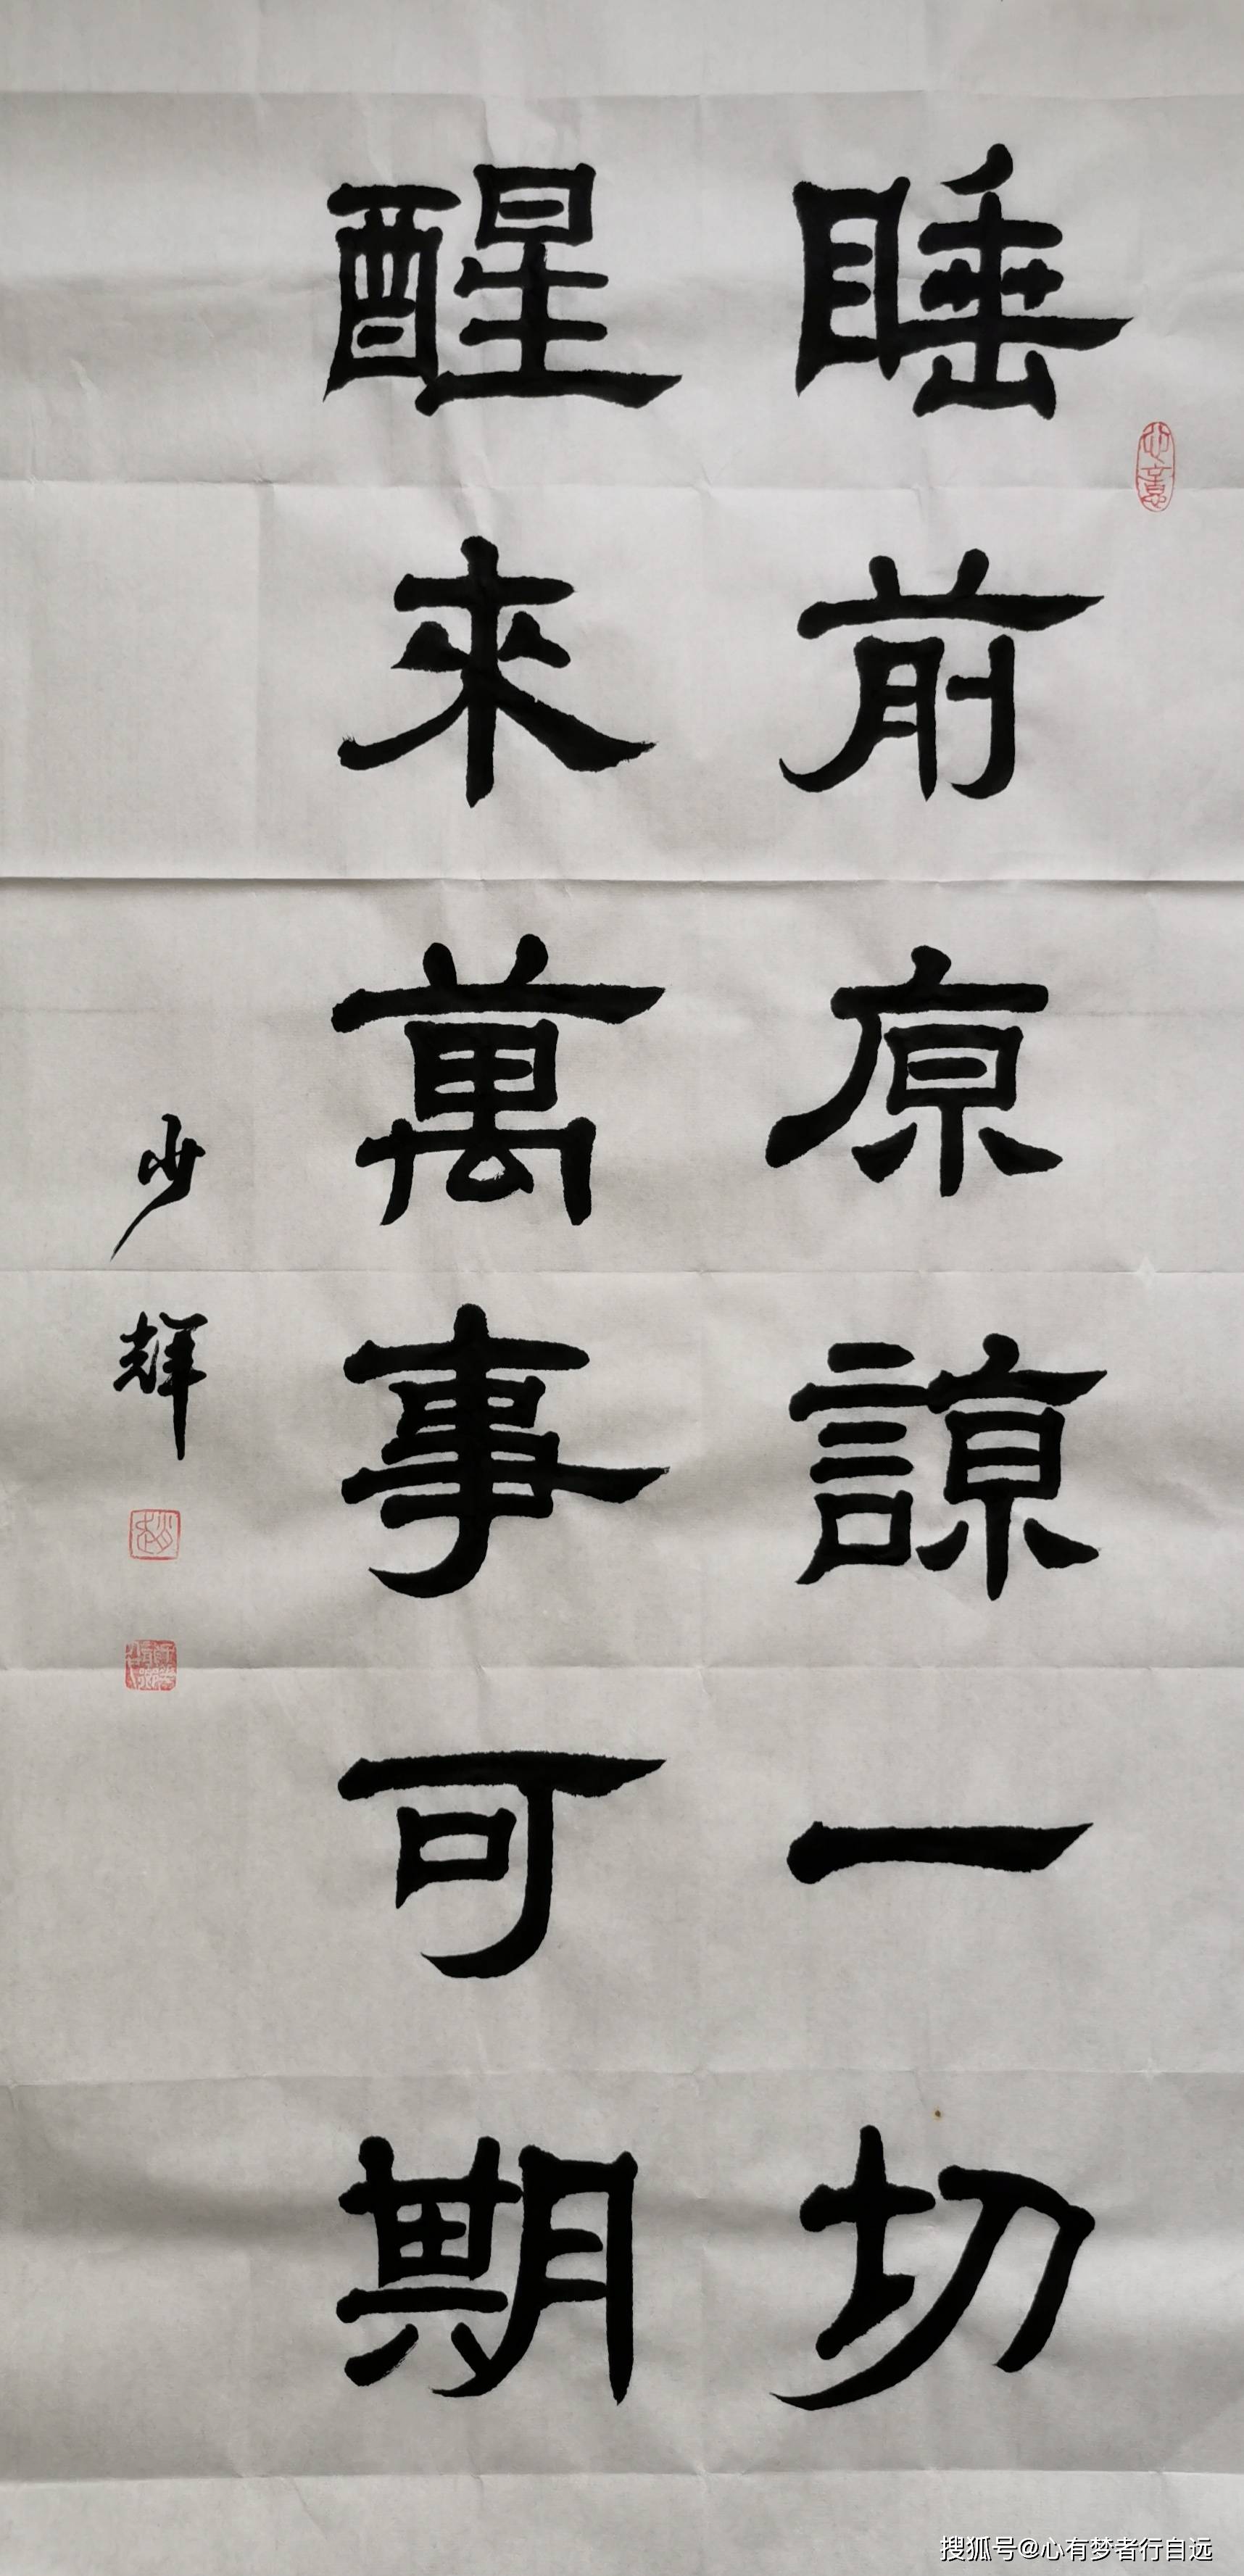 睡前原諒一切
醒來萬事可期
少輝
心意
搜狐号@心有梦者行自远